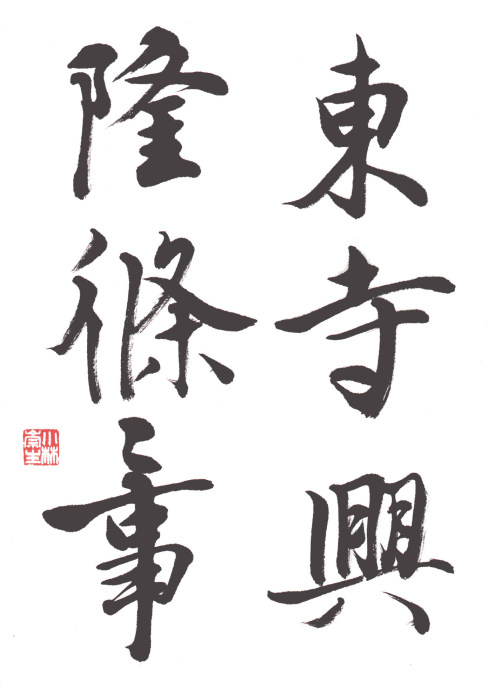 東寺興
隆條〻事
小林